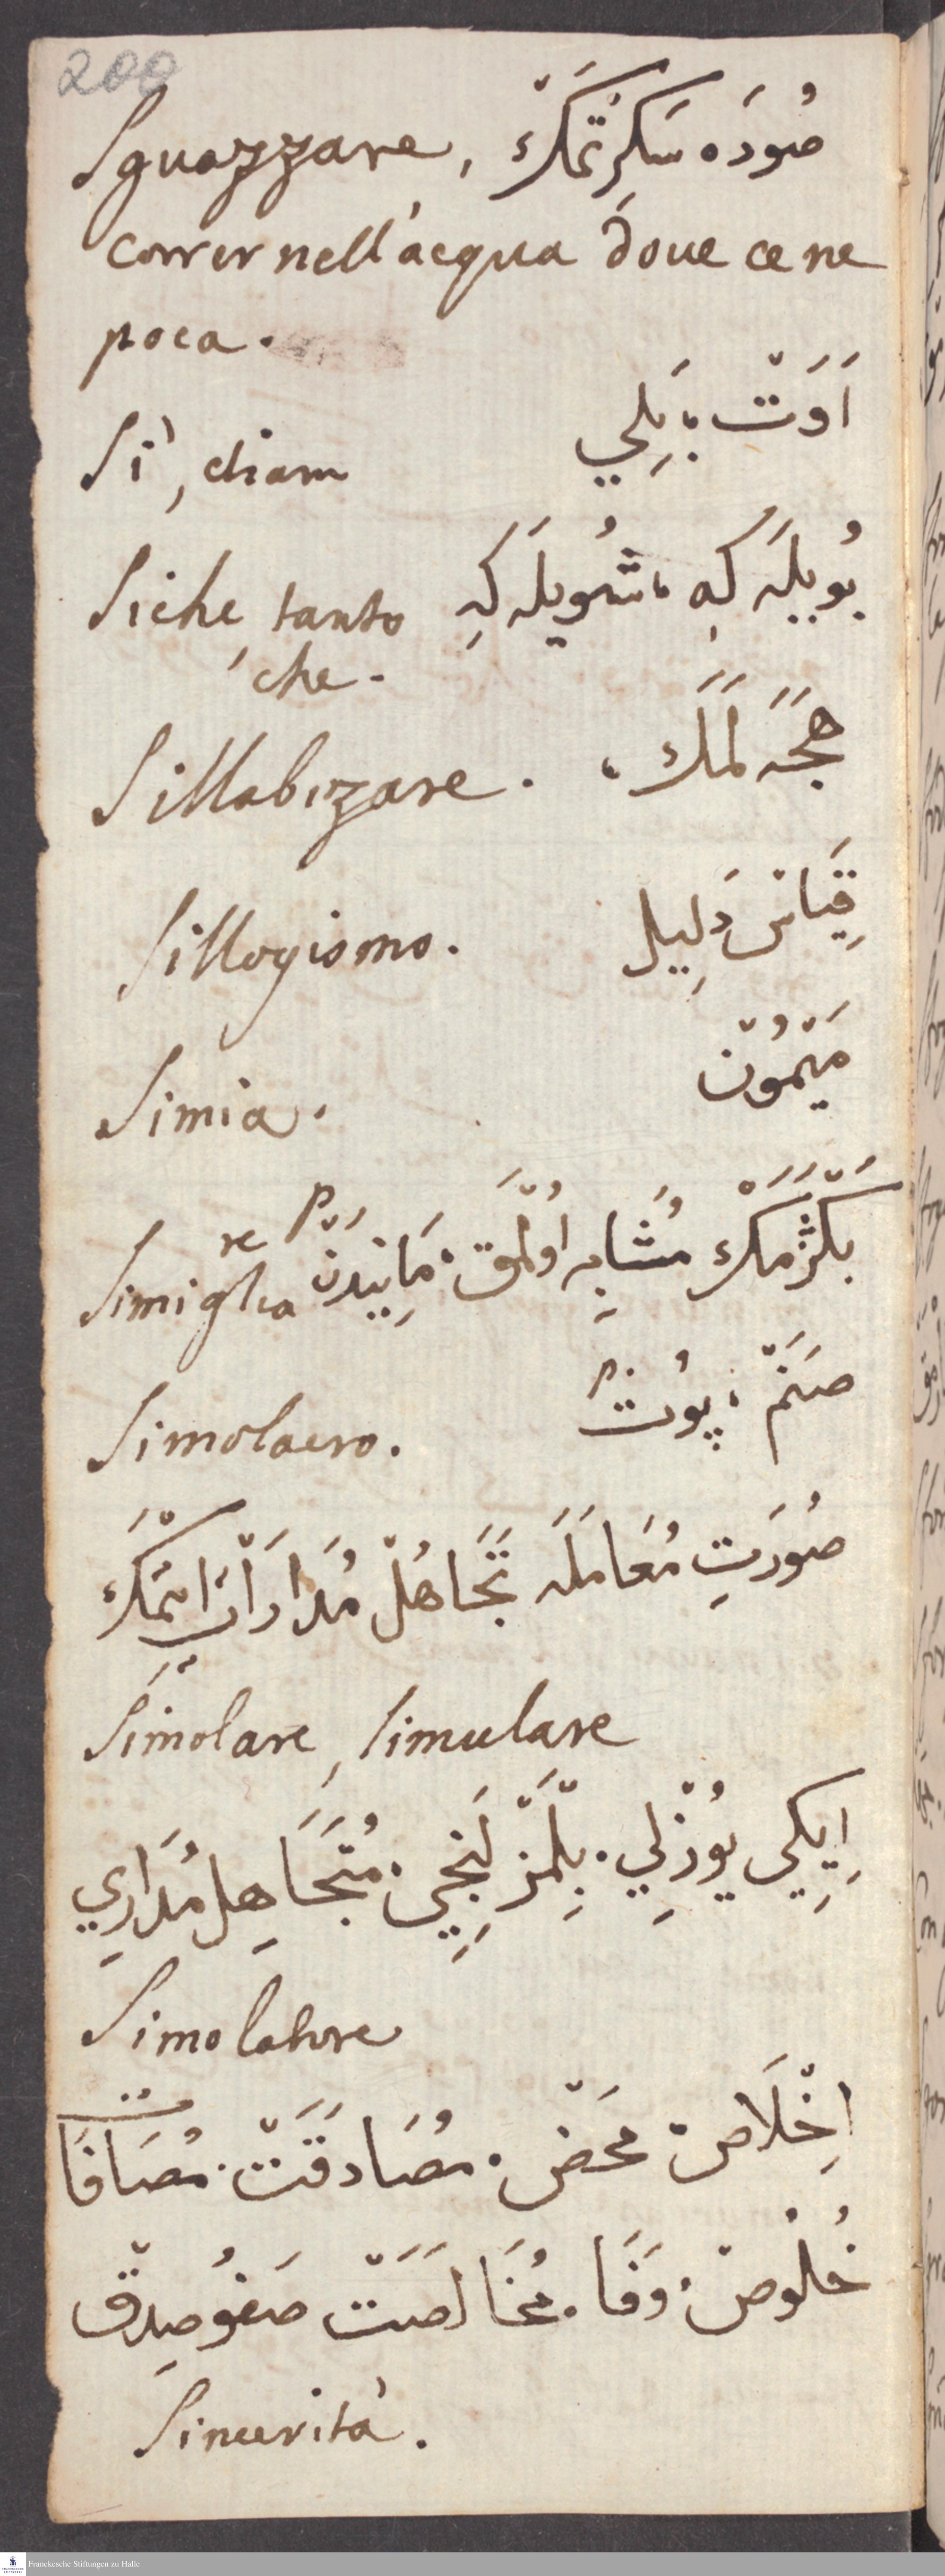 200
Sguazzare, صُودَه سَكِرتمَكْ
correr nell'acqua doue ce ne
poca.
Si, etiam اَوَتْ ؛ بَلِي
Siche, tanto بُويلَه كِه ، شُويلَه كِه
che.
Sillabizare. هَجَه لَمَك ،
Sillogismo. قِيَاسْ دَلِيل
Simia. مَيْمُونْ
Simigliare بَكْزَمَكْ مُشَابِه اولْمَق · مَانِنْدَنْ p
Simolacro. صَنَمْ ، پُوتْ p.
صُورَتِ مُعَامَلَه تَجَاهُلْ مُدَارَاتْ اتْمَكْ
Simolare, simulare
اِيكِي يُوزْلِي · بِلْمَزْلَنِجِي · مُتَجَاهِل مُدَارِي
Simolatore
اِخْلَاصْ مَحَضْ · مُصَادَقَتْ · مُصَافَاتْ
خُلُوصْ · وَفَا · مُخَالَصَتْ صَفْوُ صِدْقْ
Sincerità.
Franckesche Stiftungen zu Halle